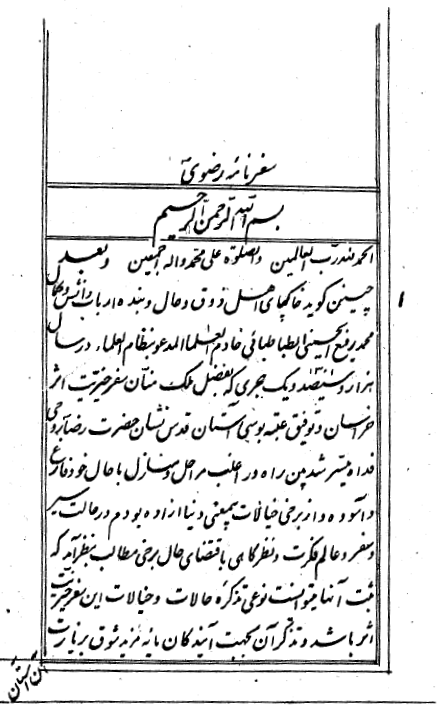 سفرنامه رضوی
بسم الله الرحمن الرحیم
الحمد لله رب العالمین والصلوة علی محمد واله اجمعین وبعد
چنین کوید خاکپای اهل ذوق وحال وبنده ارباب دانش وکمال
محمد رفیع الحسینی الطباطبائی خادم العلما المدعو بنظام العلماء در سال
هزار وسیصد ویک هجری که بفضل ملک منان سفر خیریت اثر
خراسان وتوفیق عتبه بوسی آستان قدس نشان حضرت رضا روحی
فداه میسر شد من راه در اغلب مراحل ومنازل با حال خود فارغ
وآسوده واز برخی خیالات بیمعنی دنیا ازاده بودم در حالت سیر
وسفر وعالم فکرت ونظر کاهی باقتضای حال برخی مطالب بنظر آمد که
ثبت آنها میتوانست نوعی تذکره حالات وخیالات این سفر خیریت
اثر باشد وتذکر آن بجهت آیندکان مایه مزید شوق بزیارت
آن آستان